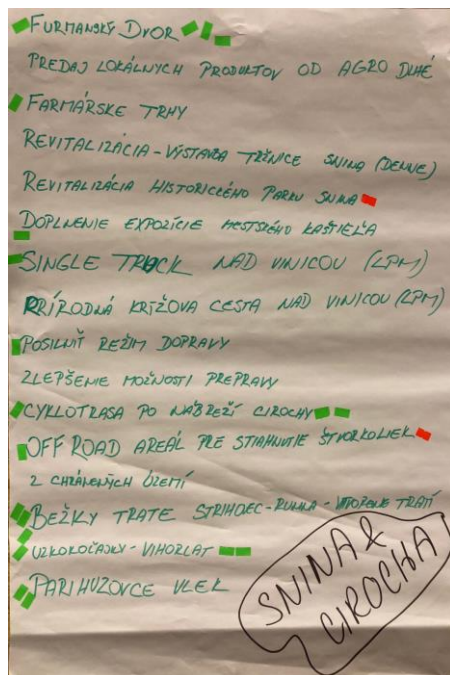 FURMANSKÝ DVOR
PREDAJ LOKÁLNYCH PRODUKTOV OD AGRO DLHÉ
FARMÁRSKE TRHY
REVITALIZÁCIA - VÝSTAVBA TRŽNICE SNINA (DENNE)
REVITALIZÁCIA HISTORICKÉHO PARKU SNINA
DOPLNENIE EXPOZÍCIE MESTSKÉHO KAŠTIEĽA
SINGLE TRACK NAD VINICOU (LPM)
PRÍRODNÁ KRÍŽOVA CESTA NAD VINICOU (LPM)
POSILNIŤ REŽIM DOPRAVY
ZLEPŠENIE MOŽNOSTI PREPRAVY
CYKLOTRASA PO NÁBREŽÍ CIROCHY
OFF ROAD AREÁL PRE STIAHNUTIE ŠTVORKOLIEK
Z CHRÁNENÝCH ÚZEMÍ
BEŽKY TRATE STRIHOVEC - RUNINA - TRATÍ
ÚZKOKOĽAJKY - VIHORLAT
PARIHUZOVCE VLEK
SNINA &
CIROCHA